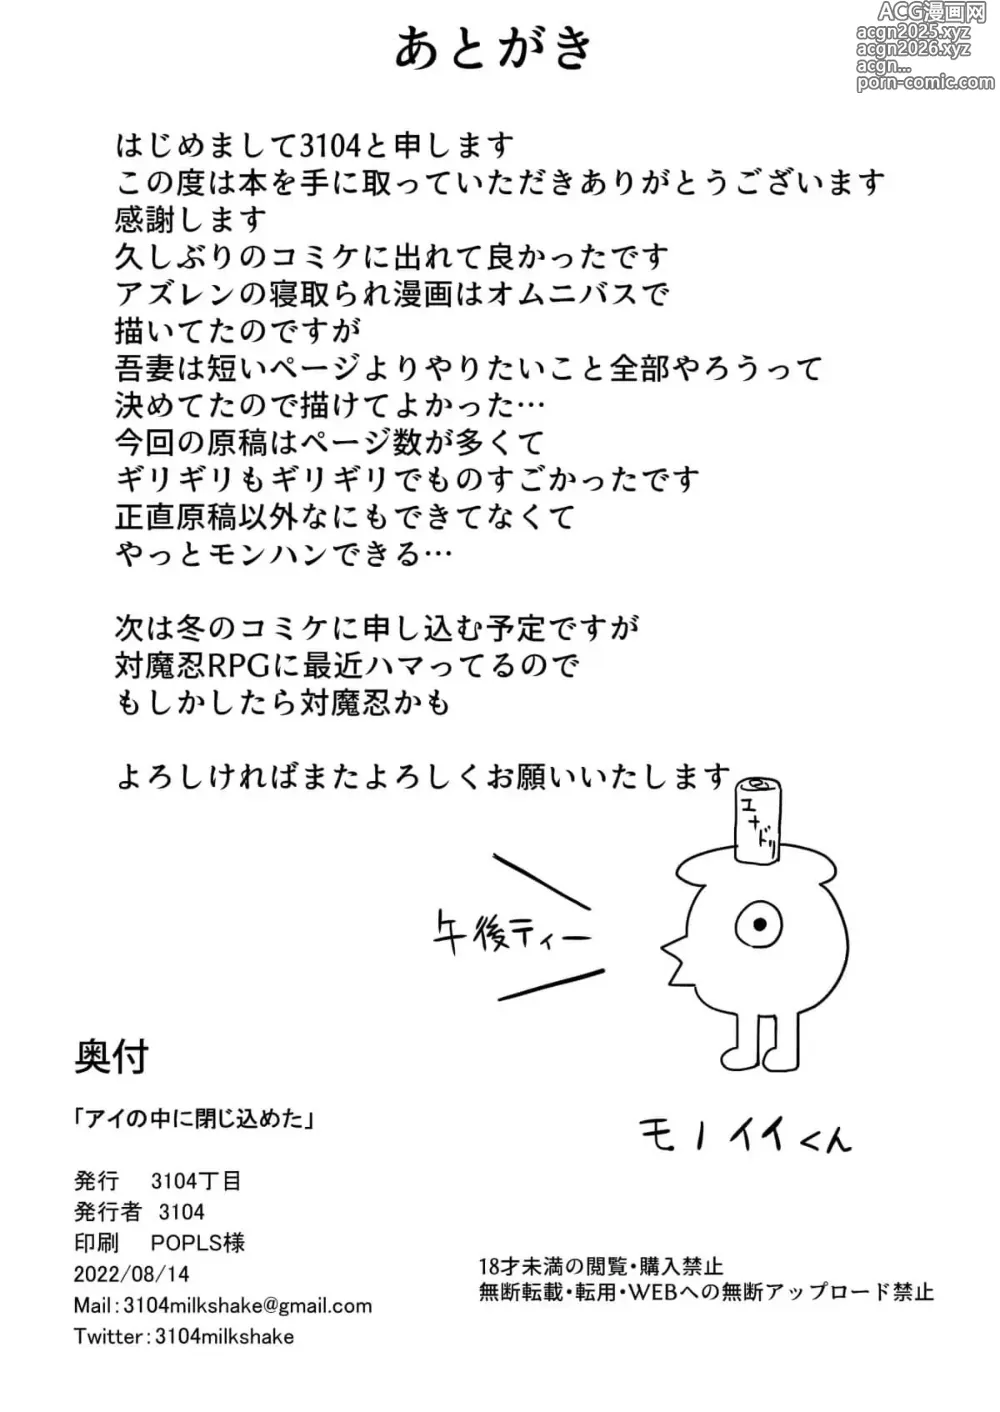 ACG漫画网
acgn2025.xyz
acgn2026.xyz
acgn...
porn-comic.com
あとがき
はじめまして3104と申します
この度は本を手に取っていただきありがとうございます
感謝します
久しぶりのコミケに出れて良かったです
アズレンの寝取られ漫画はオムニバスで
描いてたのですが
吾妻は短いページよりやりたいこと全部やろうって
決めてたので描けてよかった…
今回の原稿はページ数が多くて
ギリギリもギリギリでものすごかったです
正直原稿以外なにもできてなくて
やっとモンハンできる…
次は冬のコミケに申し込む予定ですが
対魔忍RPGに最近ハマってるので
もしかしたら対魔忍かも
よろしければまたよろしくお願いいたします
エナドリ
午後ティー
モノイイくん
奥付
「アイの中に閉じ込めた」
発行 3104丁目
発行者 3104
印刷 POPLS様
2022/08/14
Mail:3104milkshake@gmail.com
Twitter:3104milkshake
18才未満の閲覧・購入禁止
無断転載・転用・WEBへの無断アップロード禁止